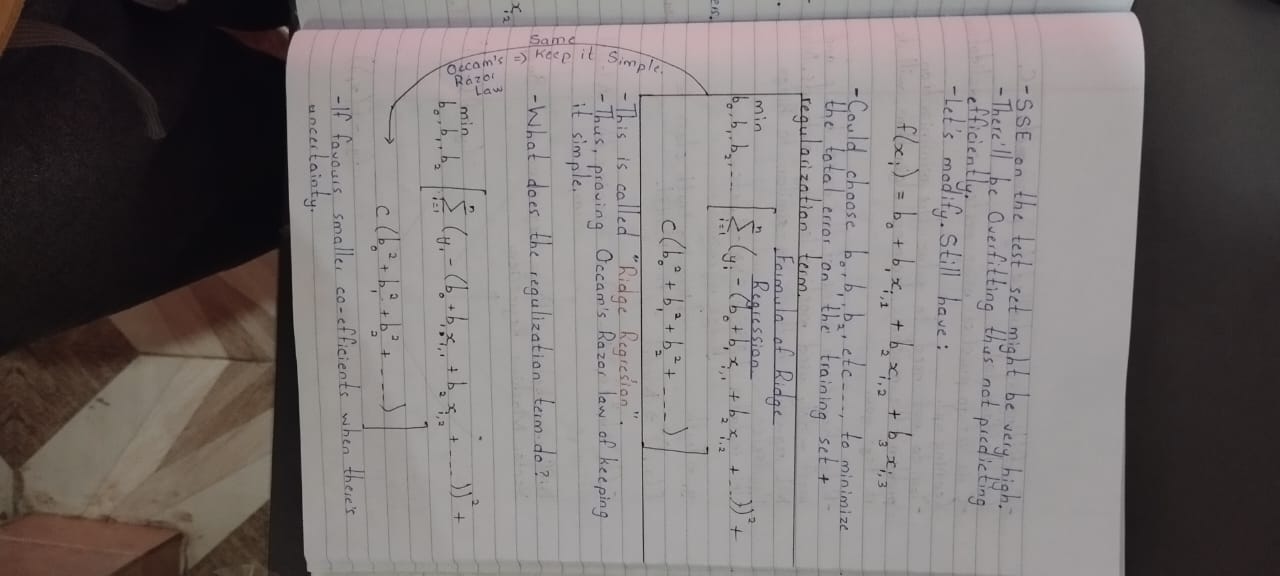 - SSE on the test set might be very high.
- There'll be Overfitting thus not predicting
efficiently.
- Let's modify. Still have:
f(xᵢ) = b₀ + b₁xᵢ,₂ + b₂xᵢ,₂ + b₃xᵢ,₃
- Could choose b₀, b₁, b₂, etc ...., to minimize
the total error on the training set +
regularization term.
Formula of Ridge
Regression
min
b₀, b₁, b₂, ... [ Σⁿᵢ₌₁ (yᵢ - (b₀ + b₁xᵢ,₁ + b₂xᵢ,₂ + ...))² +
C(b₀² + b₁² + b₂² + ...) ]
- This is called "Ridge Regresion".
- Thus, proving Occam's Razor law of keeping
it simple.
Same
Occam's => Keep it Simple.
Razor
Law
- What does the regulization term do?
min
b₀, b₁, b₂ [ Σⁿᵢ₌₁ (yᵢ - (b₀ + b₁xᵢ,₁ + b₂xᵢ,₂ + ....))² +
C(b₀² + b₁² + b₂² + ....) ]
- If favours smaller co-efficients when there's
uncertainty.
ers.
xᵢ,₂